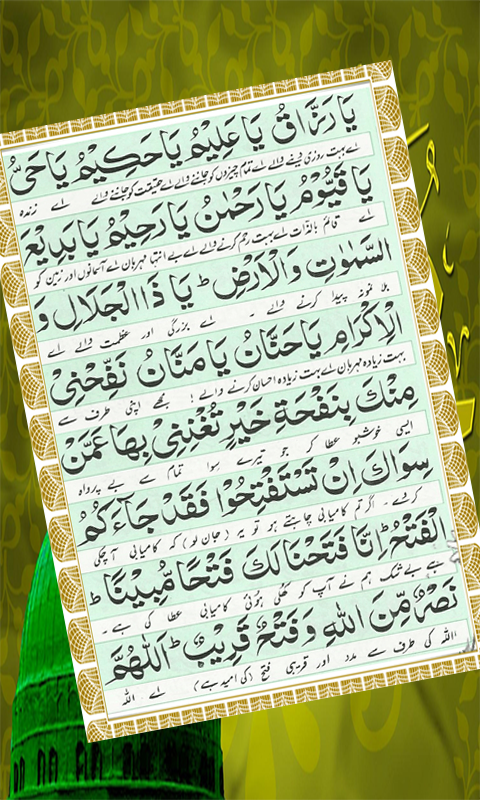 يَا رَزَّاقُ يَا عَلِيْمُ يَا حَكِيْمُ يَا حَيُّ
اے بہت روزی دینے والے اے تمام چیزوں کو جاننے والے اے حقیقت کو جاننے والے اے زندہ
يَا قَيُّوْمُ يَا رَحْمٰنُ يَا رَحِيْمُ يَا بَدِيْعَ
اے قائم بالذات اے بہت رحم کرنے والے اے بے انتہا مہربان اے آسمانوں اور زمین کو
السَّمٰوٰتِ وَالْاَرْضِ ؕ يَا ذَا الْجَلَالِ وَ
بلا نمونہ پیدا کرنے والے ۔ اے بزرگی اور عظمت والے اے
الْاِكْرَامِ يَا حَنَّانُ يَا مَنَّانُ نَفِّحْنِىْ
بہت زیادہ مہربان اے بہت زیادہ احسان کرنے والے ! مجھے اپنی طرف سے
مِنْكَ بِنَفْحَةِ خَيْرٍ تُغْنِنِىْ بِهَا عَمَّنْ
ایسی خوشبو عطا کر جو تیرے سوا تمام سے بے پرواہ
سِوَاكَ اِنْ تَسْتَفْتِحُوْا فَقَدْ جَآءَكُمُ
کردے ۔ اگر تم کامیابی چاہتے ہو تو یہ (جان لو) کہ کامیابی آچکی
الْفَتْحُ ؕ اِنَّا فَتَحْنَا لَكَ فَتْحًا مُّبِيْنًا ؕ
ہے بے شک ہم نے آپ کو کھلی ہوئی کامیابی عطا کی ہے ۔
نَصْرٌ مِّنَ اللهِ وَفَتْحٌ قَرِيْبٌ ؕ اَللّٰهُمَّ
اللہ کی طرف سے مدد اور قریبی فتح (کی امید ہے) اے اللہ